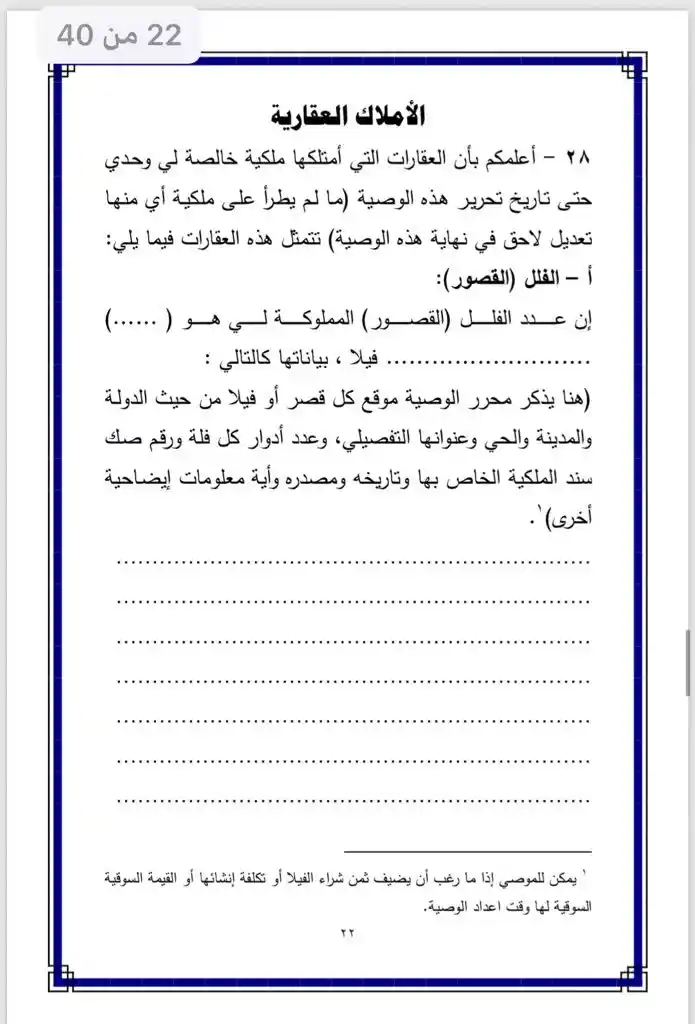 22 من 40
الأملاك العقارية
٢٨ – أعلمكم بأن العقارات التي أمتلكها ملكية خالصة لي وحدي
حتى تاريخ تحرير هذه الوصية (ما لم يطرأ على ملكية أي منها
تعديل لاحق في نهاية هذه الوصية) تتمثل هذه العقارات فيما يلي:
أ – الفلل (القصور):
إن عـــدد الفلـــل (القصـــور) المملوكـــة لـــي هـــو ( ......)
........................... فيلا ، بياناتها كالتالي :
(هنا يذكر محرر الوصية موقع كل قصر أو فيلا من حيث الدولة
والمدينة والحي وعنوانها التفصيلي، وعدد أدوار كل فلة ورقم صك
سند الملكية الخاص بها وتاريخه ومصدره وأية معلومات إيضاحية
أخرى)١.
...............................................................
...............................................................
...............................................................
...............................................................
...............................................................
...............................................................
...............................................................
١ يمكن للموصي إذا ما رغب أن يضيف ثمن شراء الفيلا أو تكلفة إنشائها أو القيمة السوقية
السوقية لها وقت اعداد الوصية.
٢٢